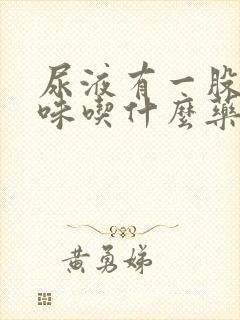 尿液有一股
味喫什麼藥
黃勇娣